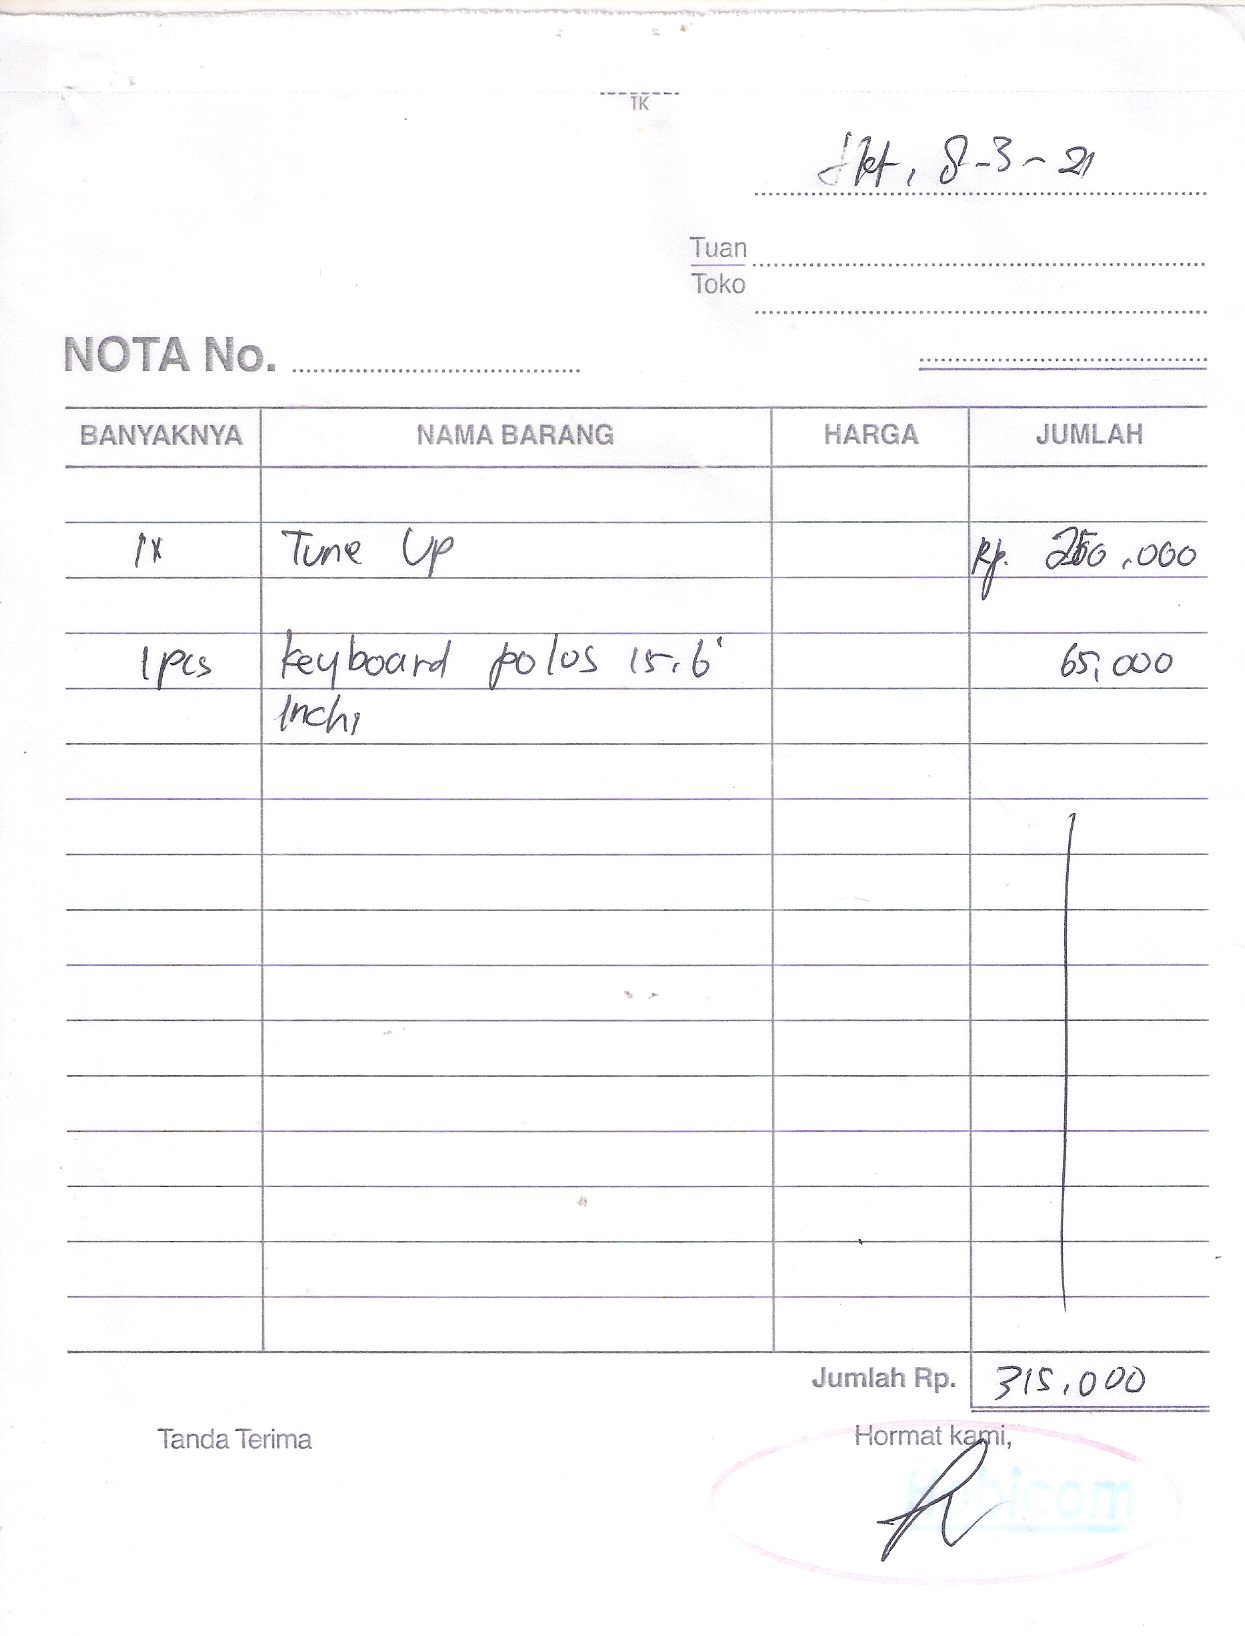 TK
Jkt, 8-3-21
Tuan
Toko
NOTA No.
BANYAKNYA NAMA BARANG HARGA JUMLAH
1x Tune Up Rp. 250.000
1 pcs keyboard polos 15.6' 65,000
Inchi
Jumlah Rp. 315.000
Tanda Terima Hormat kami,